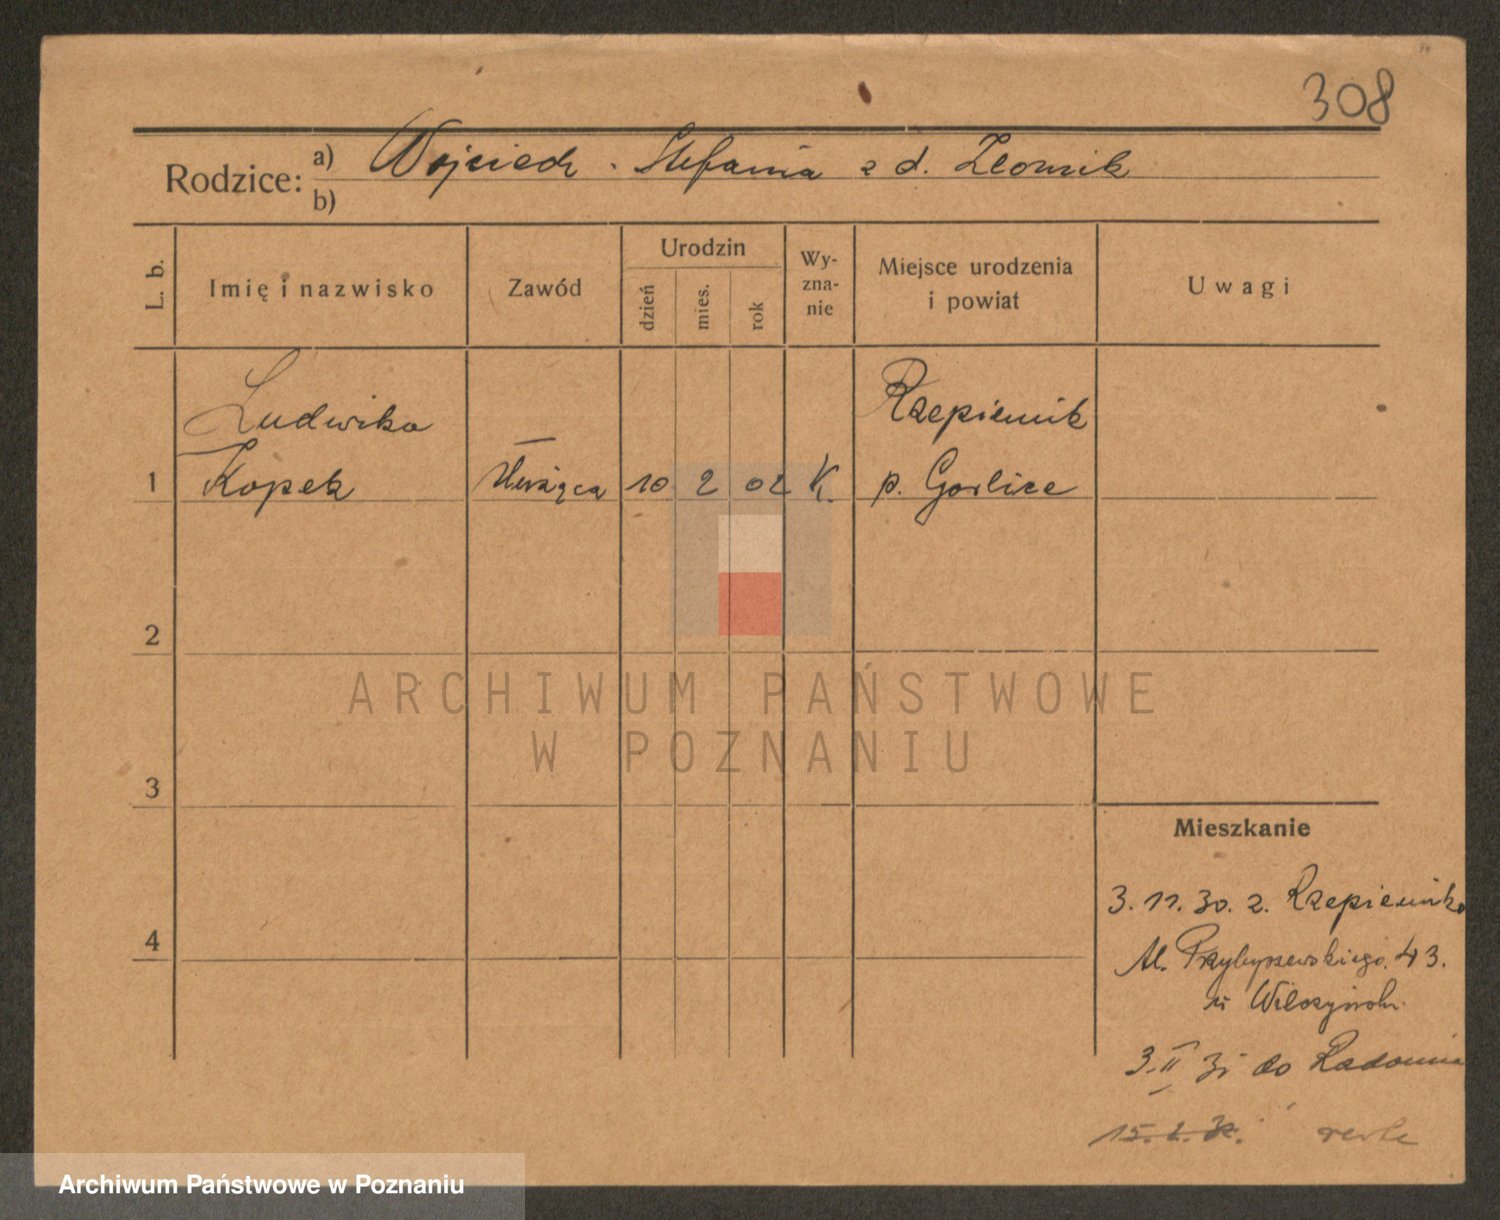 308
Rodzice:
a) Wojciech - Stefania z d.
b)
L. b.
Imię i nazwisko
Zawód
Urodzin
dzień
mies.
rok
Wy-
zna-
nie
Miejsce urodzenia
i powiat
Uwagi
Ludwika
Rzepiennik
1 Kopek służąca 10 2 02 K. p. Gorlice
2
3
4
ARCHIWUM PAŃSTWOWE
W POZNANIU
Mieszkanie
3. 11. 30. z. Rzepiennika
Al. Przybyszewskiego. 43.
u
3. II 31 do Radomia
15. 2. verte
Archiwum Państwowe w Poznaniu